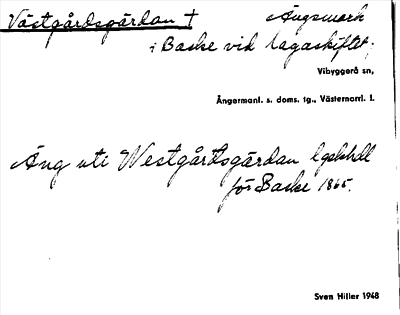 Västgårdsgärdan † Ängsmark
i Baske vid lagaskiftet.
Vibyggerå sn,
Ångermanl. s. doms. tg., Västernorrl. l.
Äng uti Westgårdsgärdan lgskhdl
för Baske 1865.
Sven Hiller 1948